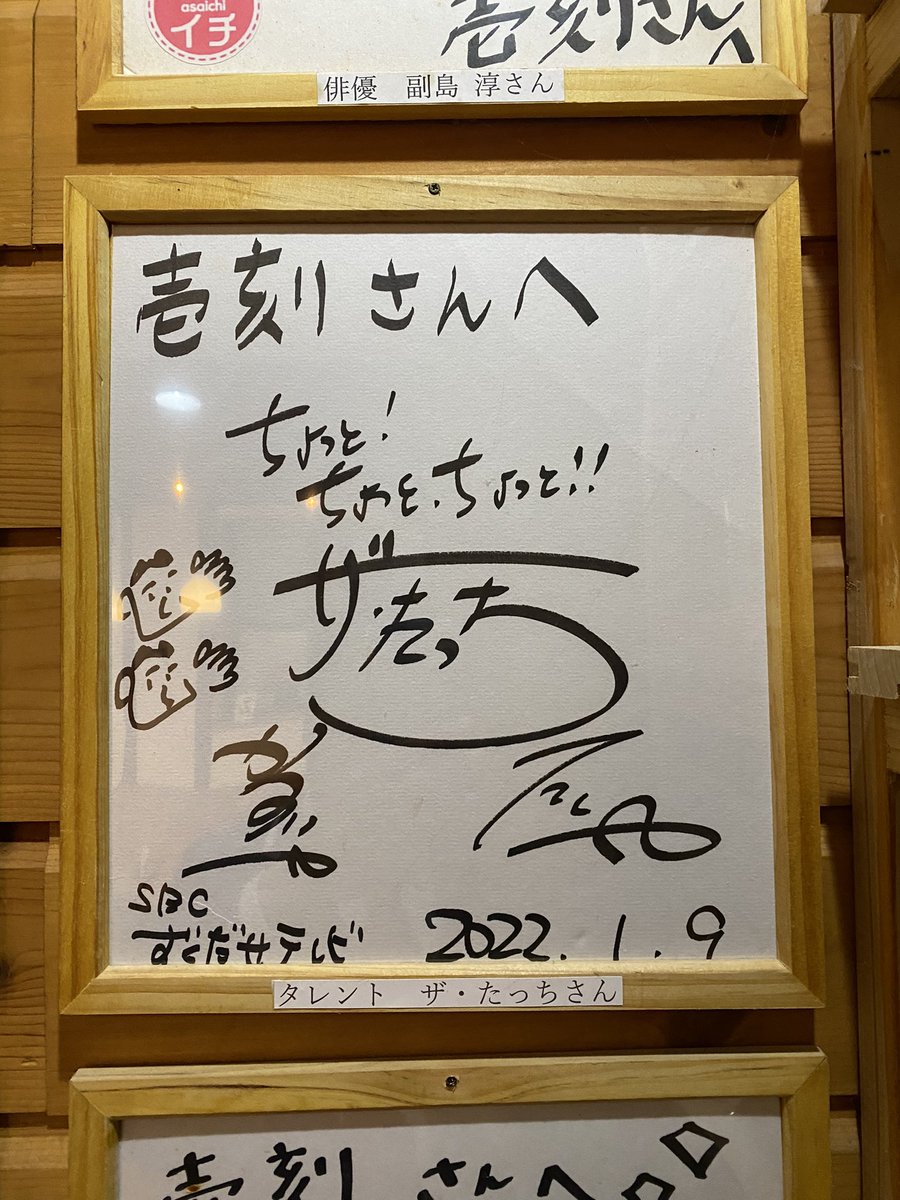 asaichi
イチ
壱刻さんへ
俳優　副島 淳さん
壱刻さんへ
ちょっと!
ちょっと、ちょっと!!
ザ・たっち
かずや
SBC
ずくだせテレビ
2022.1.9
タレント　ザ・たっちさん
壱刻 さんへ